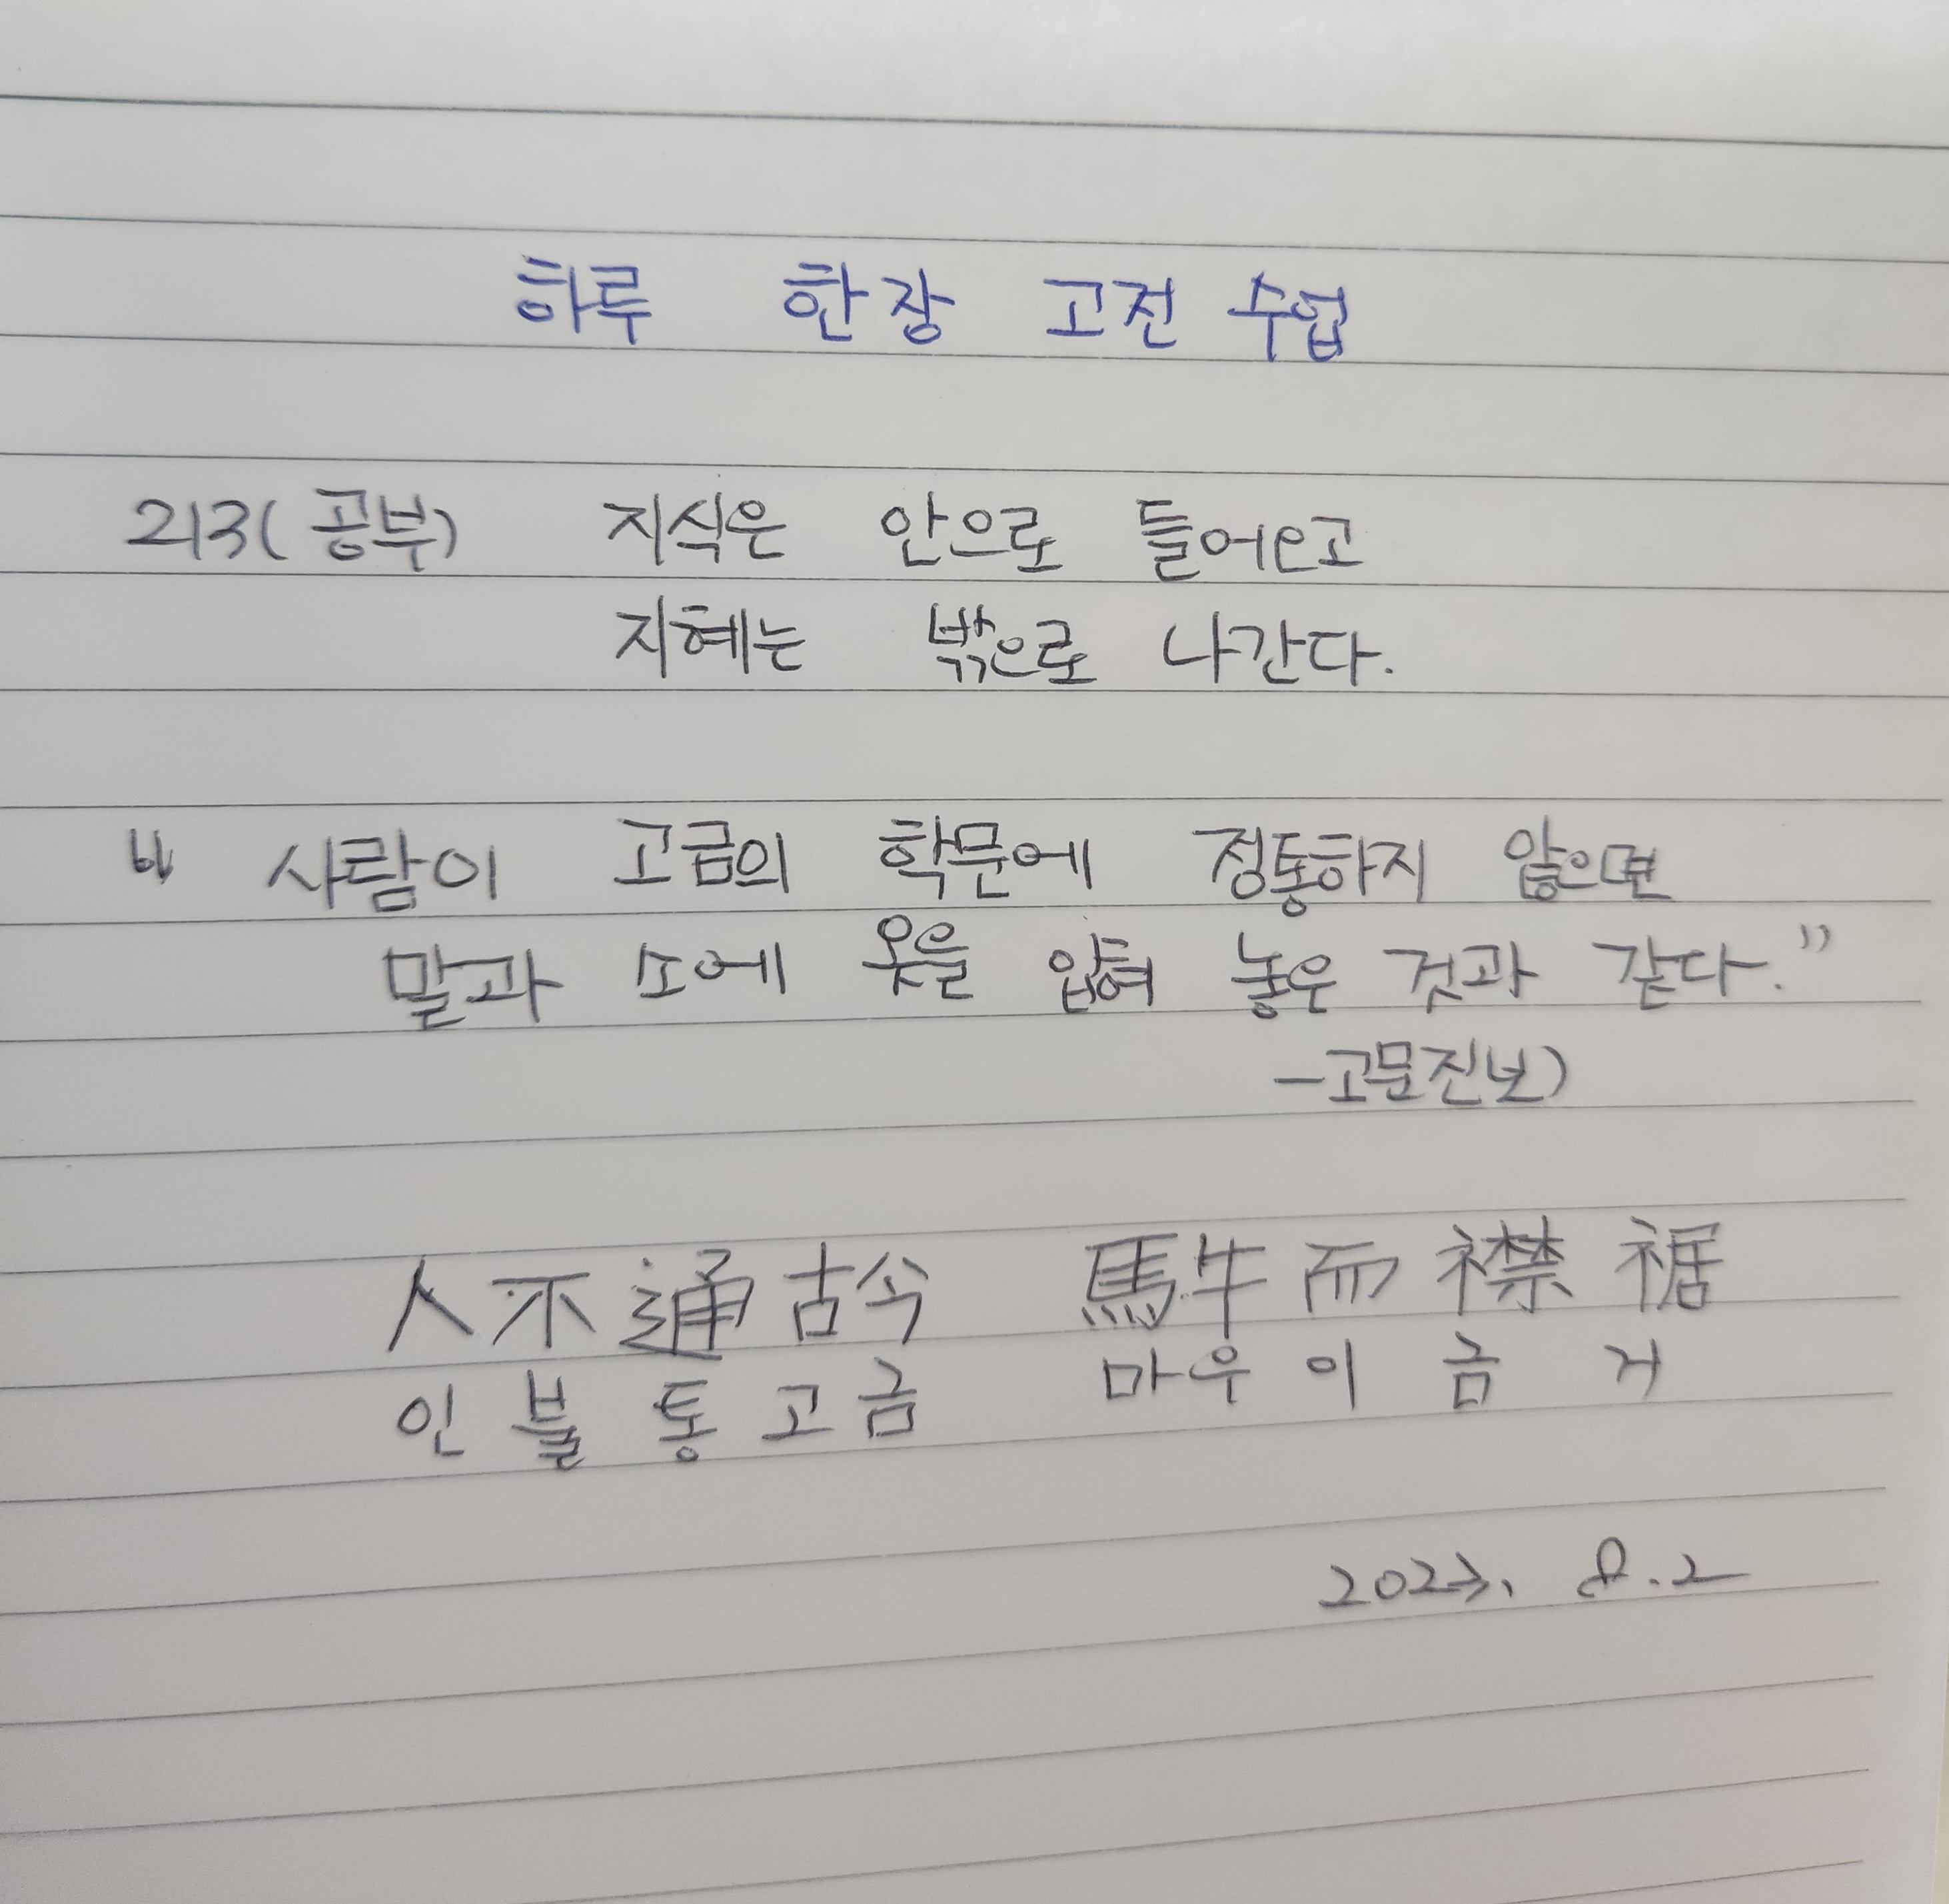 하루 한장 고전 수업
213(공부) 지식은 안으로 들어오고
지혜는 밖으로 나간다.
“ 사람이 고금의 학문에 정통하지 않으면
말과 소에 옷을 입혀 놓은 것과 같다.”
-고문진보)
人不通古今 馬牛而襟裾
인불통고금 마우이금거
2023. 8.2